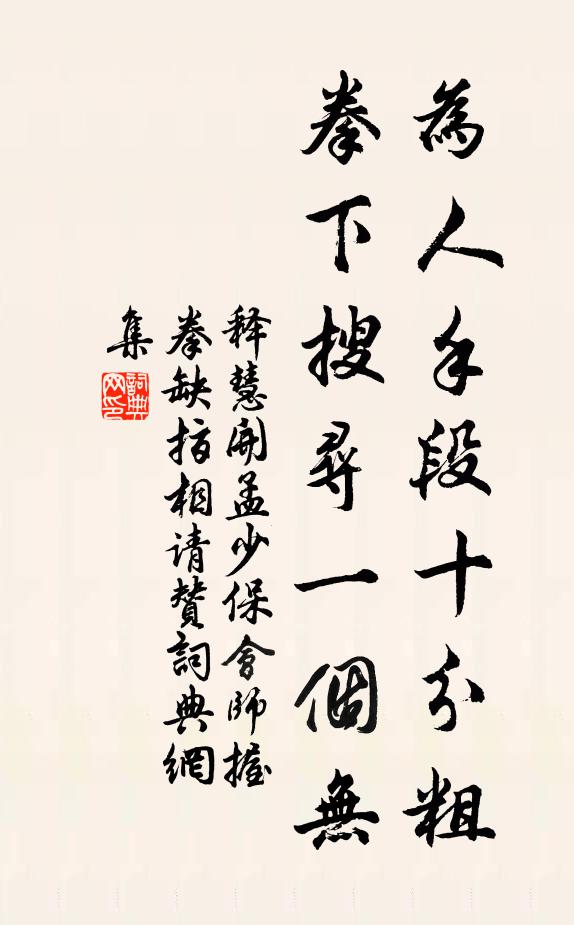 為人手段十分粗
拳下搜尋一個無
释慧開孟少保會師握
拳缺指相请賛詞典網
集
詞典
网印